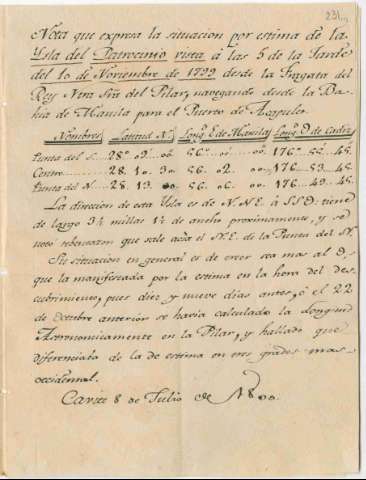 231.
Nota que expresa la situacion por estima de la
Ysla del Patrocinio vista á las 5 de la Tarde
del 10 de Noviembre de 1799 desde la Fragata del
Rey Ntra Sra del Pilar, navegando desde la Ba-
hia de Manila para el Puerto de Acapulco.
Nombres Latitud N. Longd. E de Manila Longd. O de Cadiz
Punta del S... 28° 09 00 56° 00 176° 53 45
Centro 28. 10. 30 56. 02 00 176. 53 45
Punta del N... 28. 13 00 56. 06 00 176. 49. 45
La direccion de esta Ysla es de N.N.E. á S.S.O. tiene
de largo 3½ millas 1½ de ancho proximamente, y se
noto rebentazon que sale acia el N.E. de la Punta del N.
Su situacion en general es de creer sea mas al O.
que la manifestada por la estima en la hora del des-
cubrimiento, pues diez y nueve dias antes, ó el 22
de Octubre anterior se havia calculado la Longitud
Astronomicamente en la Pilar, y hallado que
diferenciaba de la de estima en tres grados mas
occidental.
Cavite 8 de Julio de 1800.